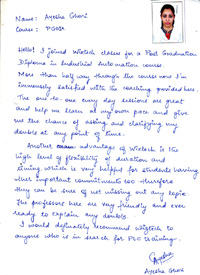 Name: Ayesha Ghori
Course: PGDIA
Hello! I joined Wiztech classes for a Post Graduation
Diploma in Industrial Automation course.
More than half way through the course now I'm
immensely satisfied with the coaching provided here.
The one-to-one every day sessions are great
and help me learn at my own pace and give
me the chance of asking and clarifying my
doubts at any point of time.
Another advantage of Wiztech is the
high level of flexibility of duration and
timing which is very helpful for students having
other important commitments too therefore
they can be sure of not missing out any topic.
The professors here are very friendly and ever
ready to explain any doubts.
I would definitely recommend Wiztech to
anyone who is in search for PLC training.
Ayesha
Ayesha Ghori